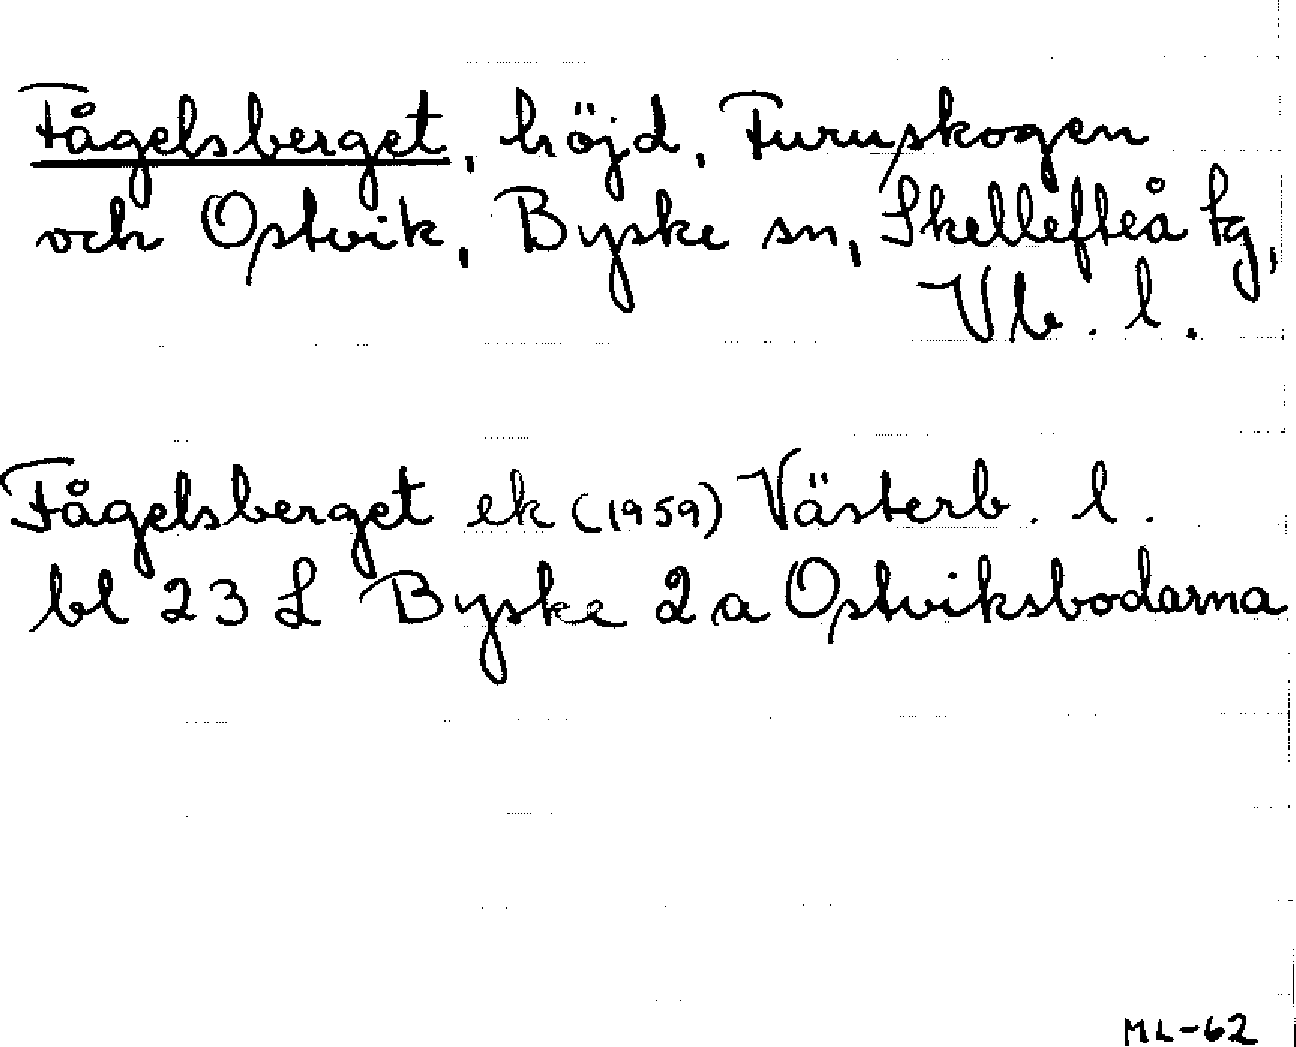 Fågelsberget, höjd, Furuskogen
och Ostvik, Byske sn, Skellefteå tg,
Vb. l.
Fågelsberget ek (1959) Västerb. l.
bl 23 L Byske 2a Ostviksbodarna
ML-62